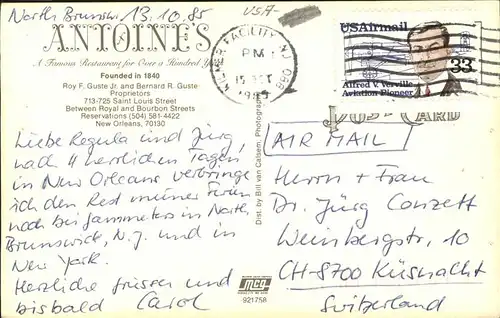 North Brunsw. 13.10.85
USA
ANTOINE'S
A Famous Restaurant for Over a Hundred Years
Founded in 1840
Roy F. Guste Jr. and Bernard R. Guste
Proprietors
713-725 Saint Louis Street
Between Royal and Bourbon Streets
Reservations (504) 581-4422
New Orleans, 70130
Liebe Regula und Jürg,
nach 4 herrlichen Tagen
in New Orleans verbringe
ich den Rest meiner Ferien
noch bei Jammeters in North
Brunswick, N.J. und in
New York.
Herzliche Grüsse und
bisbald Carol
FACILITY NJ 088
PM
15 OCT
1985
USAirmail
33
Alfred V. Verville
Aviation Pioneer
POST CARD
AIR MAIL
Herrn + Frau
Dr. Jürg Conzett
Weinbergstr. 10
CH-8700 Küsnacht
Switzerland
Dist. by Bill van Calsem, Photograph
mcg
921758